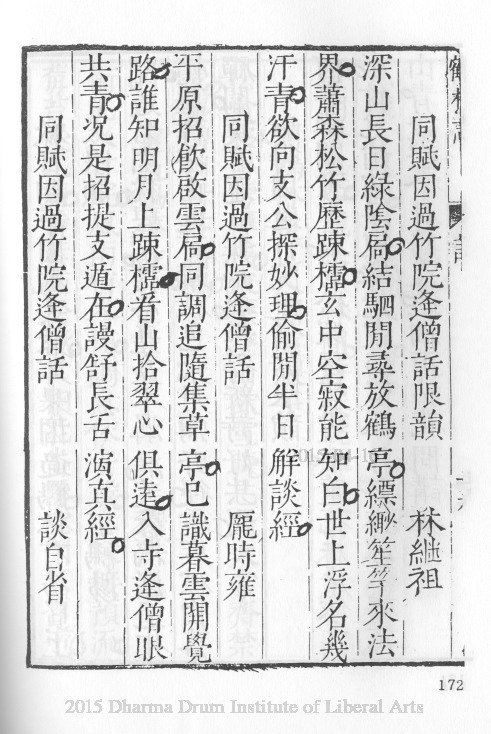 同賦因過竹院逢僧話限韻 林繼祖
深山長日綠陰扃結駟閒尋放鶴亭縹緲笙竽來法
界蕭森松竹歷踈櫺玄中空寂能知白世上浮名幾
汗青欲向支公探妙理偷閒半日觧談經
同賦因過竹院逢僧話 龎時雍
平原招飲啟雲扃同調追隨集草亭已識暮雲開覺
路誰知明月上踈櫺看山拾翠心俱遠入寺逢僧眼
共青况是招提支遁在謾舒長舌演真經
同賦因過竹院逢僧話 談自省
172
2015 Dharma Drum Institute of Liberal Arts